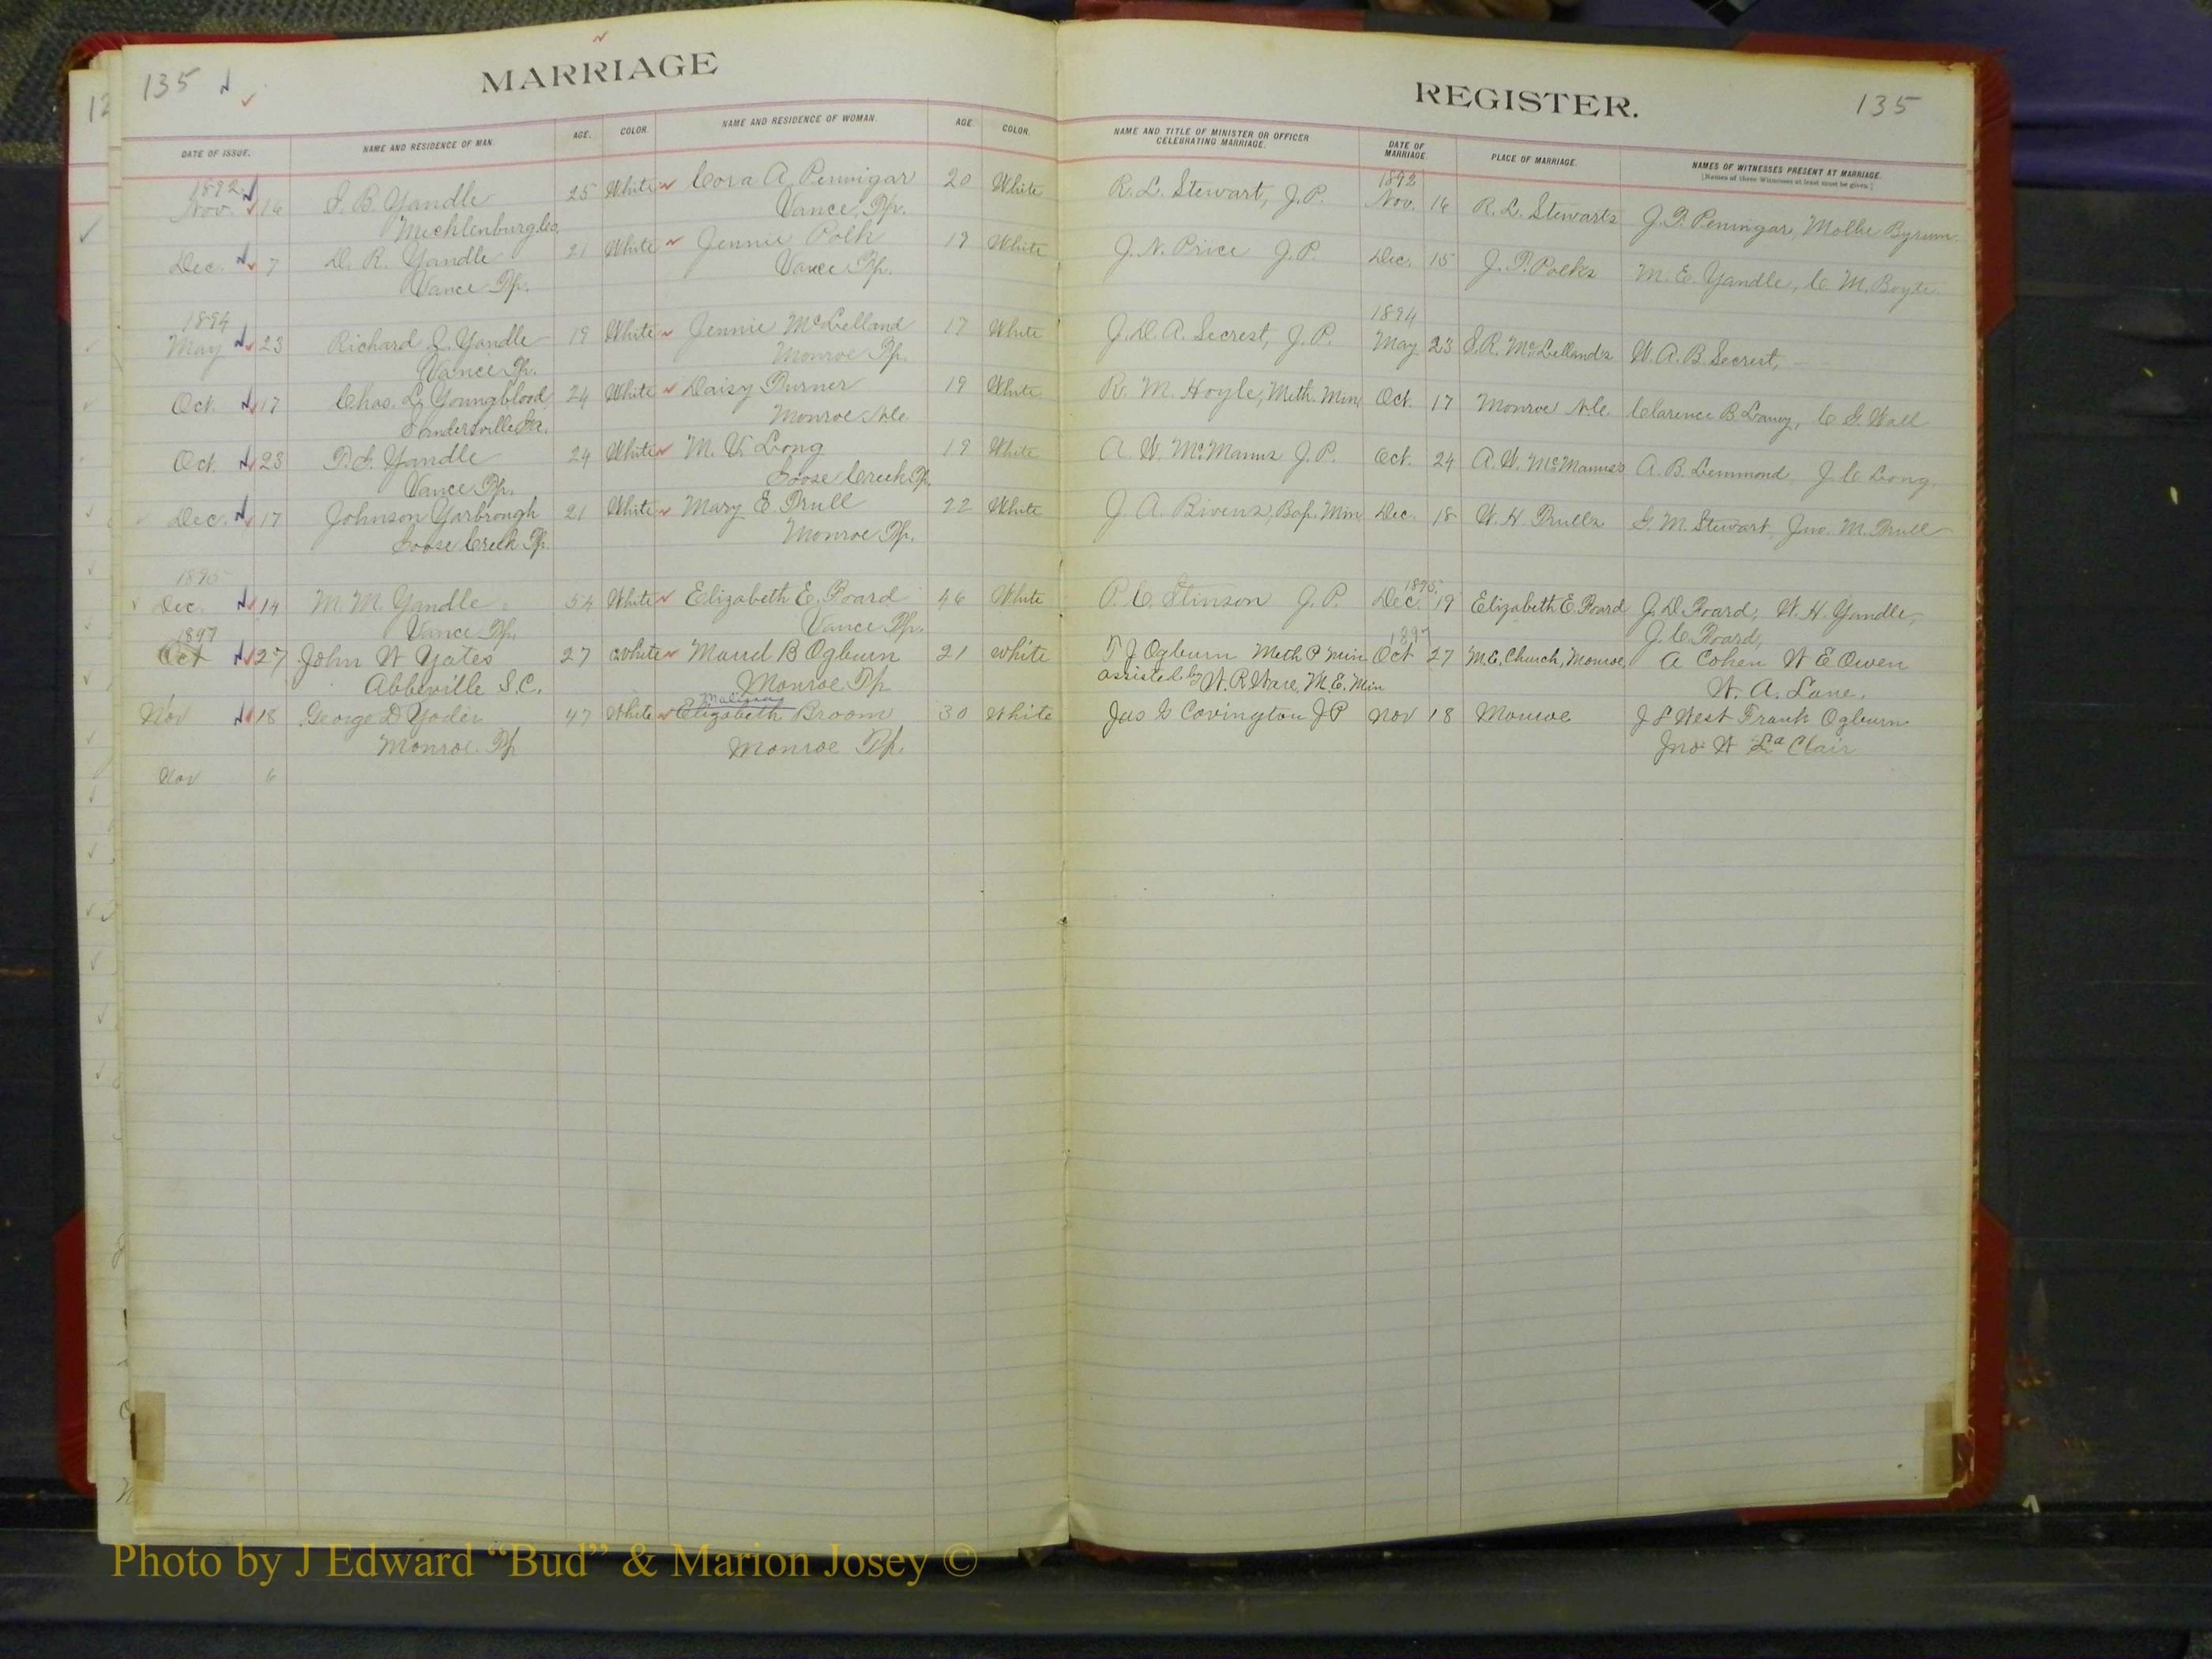 135 MARRIAGE
DATE OF ISSUE. NAME AND RESIDENCE OF MAN. AGE. COLOR. NAME AND RESIDENCE OF WOMAN. AGE. COLOR.
REGISTER. 135
NAME AND TITLE OF MINISTER OR OFFICER CELEBRATING MARRIAGE. DATE OF MARRIAGE. PLACE OF MARRIAGE. NAMES OF WITNESSES PRESENT AT MARRIAGE.
[Names of three Witnesses at least must be given.]
1892 1892
Nov. 16 S. B. Yandle 25 White Cora A. Pennigar 20 White R. L. Stewart, J.P. Nov. 16 R. L. Stewarts J. T. Pennigar, Mollie Byrum
Mecklenburg Co. Vance Tp.
Dec. 7 D. R. Yandle 21 White Jennie Polk 19 White J. N. Price J.P. Dec. 15 J. T. Polks M. E. Yandle, C. M. Boyte
Vance Tp. Vance Tp.
1894 1894
May 23 Richard J. Yandle 19 White Jennie McLelland 17 White J. D. A. Secrest, J. P. May 23 S. R. McLellands W. A. B. Secrest,
Vance Tp. Monroe Tp.
Oct. 17 Chas. L. Youngblood 24 White Daisy Turner 19 White R. M. Hoyle, Meth. Min Oct. 17 Monroe N.C. Clarence B. Laney, C. G. Wall
Sandersville Ga. Monroe N.C.
Oct. 23 T. S. Yandle 24 White M. V. Long 19 White A. W. McManus J.P. Oct. 24 A. W. McManus's A. B. Lemmond, J. C. Long.
Vance Tp. Goose Creek Tp.
Dec. 17 Johnson Yarbrough 21 White Mary E. Trull 22 White J. A. Bivens, Bap. Min Dec. 18 W. H. Trulls G. M. Stewart, Jno. M. Trull
Goose Creek Tp. Monroe Tp.
1895 1895
Dec. 14 M. M. Yandle 54 White Elizabeth E. Foard 46 White P. C. Stinson J. P. Dec. 19 Elizabeth E. Foard J. D. Foard, W. H. Yandle,
Vance Tp. Vance Tp. J. C. Foard,
1897 1897
Oct 27 John W Yates 27 White Maud B Ogburn 21 White T J Ogburn Meth P Min Oct 27 M. E. Church, Monroe, A Cohen W E Owen
Abbeville S.C. Monroe Tp assisted by W. R. Ware, M. E. Min W. A. Lane.
Malissa
Nov 18 George D Yoder 47 White Elizabeth Broom 30 White Jas G Covington J P Nov 18 Monroe J L West Frank Ogburn
Monroe Tp Monroe Tp. Jno W La Clair
Nov 6
Photo by J Edward “Bud” & Marion Josey ©